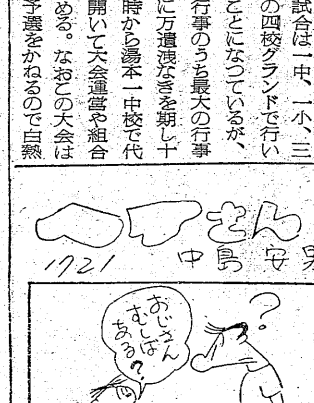 試合は一中、一小、三
の四校グランドで行い
ことになつているが、
行事のうち最大の行事
に万遺浅なきを期し十
時から湯本一中校で代
開いて大会運営や組合
める。なおこの大会は
予選をかねるので白熱
さん
1721
中島安
おじさん
むしば
ある?
?